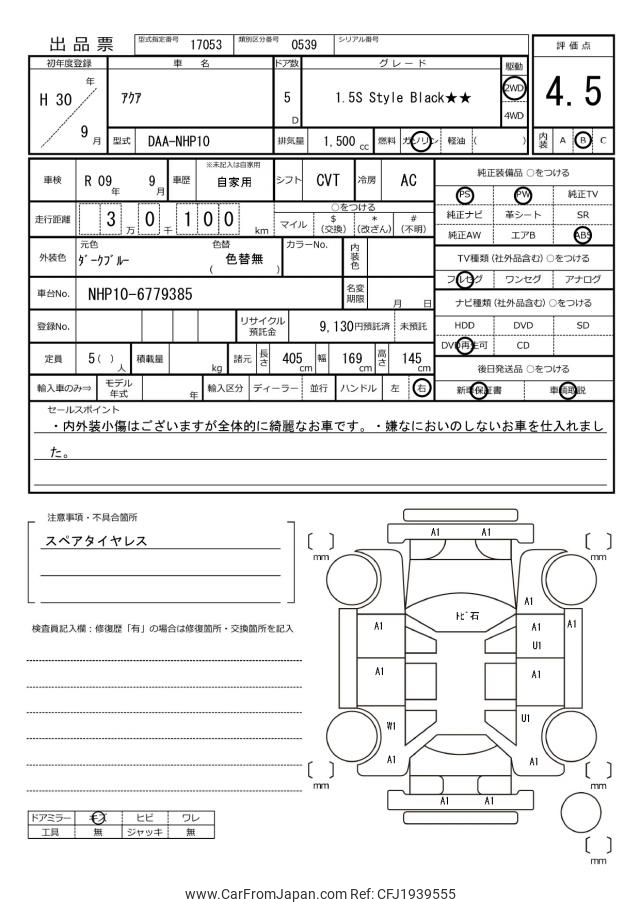 出品票 型式指定番号 17053 類別区分番号 0539 シリアル番号
評価点
4.5
内装 A B C
初年度登録 車名 ドア数 グレード 駆動
H 30 年 9 月
アクア
5 D
1.5S Style Black★★
2WD
4WD
型式 DAA-NHP10 排気量 1,500 cc 燃料 ガソリン 軽油 ( )
車検 R 09 年 9 月 車歴 ※未記入は自家用 自家用 シフト CVT 冷房 AC
走行距離 3 万 0 千 1 0 0 km
○をつける
マイル $(交換) *(改ざん) #(不明)
外装色 元色 ダークブルー 色替 ( 色替無 ) カラーNo. 内装色
車台No. NHP10-6779385 名変期限 月 日
登録No. リサイクル預託金 9,130円預託済 未預託
定員 5( )人 積載量 kg 諸元 長さ 405cm 幅 169cm 高さ 145cm
輸入車のみ⇒ モデル年式 年 輸入区分 ディーラー 並行 ハンドル 左 右
純正装備品 ○をつける
PS PW 純正TV
純正ナビ 革シート SR
純正AW エアB ABS
TV種類(社外品含む)○をつける
フルセグ ワンセグ アナログ
ナビ種類(社外品含む)○をつける
HDD DVD SD
DVD再生可 CD
後日発送品 ○をつける
新車保証書 車輌取説
セールスポイント
・内外装小傷はございますが全体的に綺麗なお車です。・嫌なにおいのしないお車を仕入れまし
た。
注意事項・不具合箇所
スペアタイヤレス
検査員記入欄：修復歴「有」の場合は修復箇所・交換箇所を記入
ドアミラー キズ ヒビ ワレ
工具 無 ジャッキ 無
A1 A1
mm mm
トビ石
A1
A1 A1 A1
U1
A1 A1
W1 U1
A1 A1
mm mm
A1 A1
mm
www.CarFromJapan.com Ref: CFJ1939555